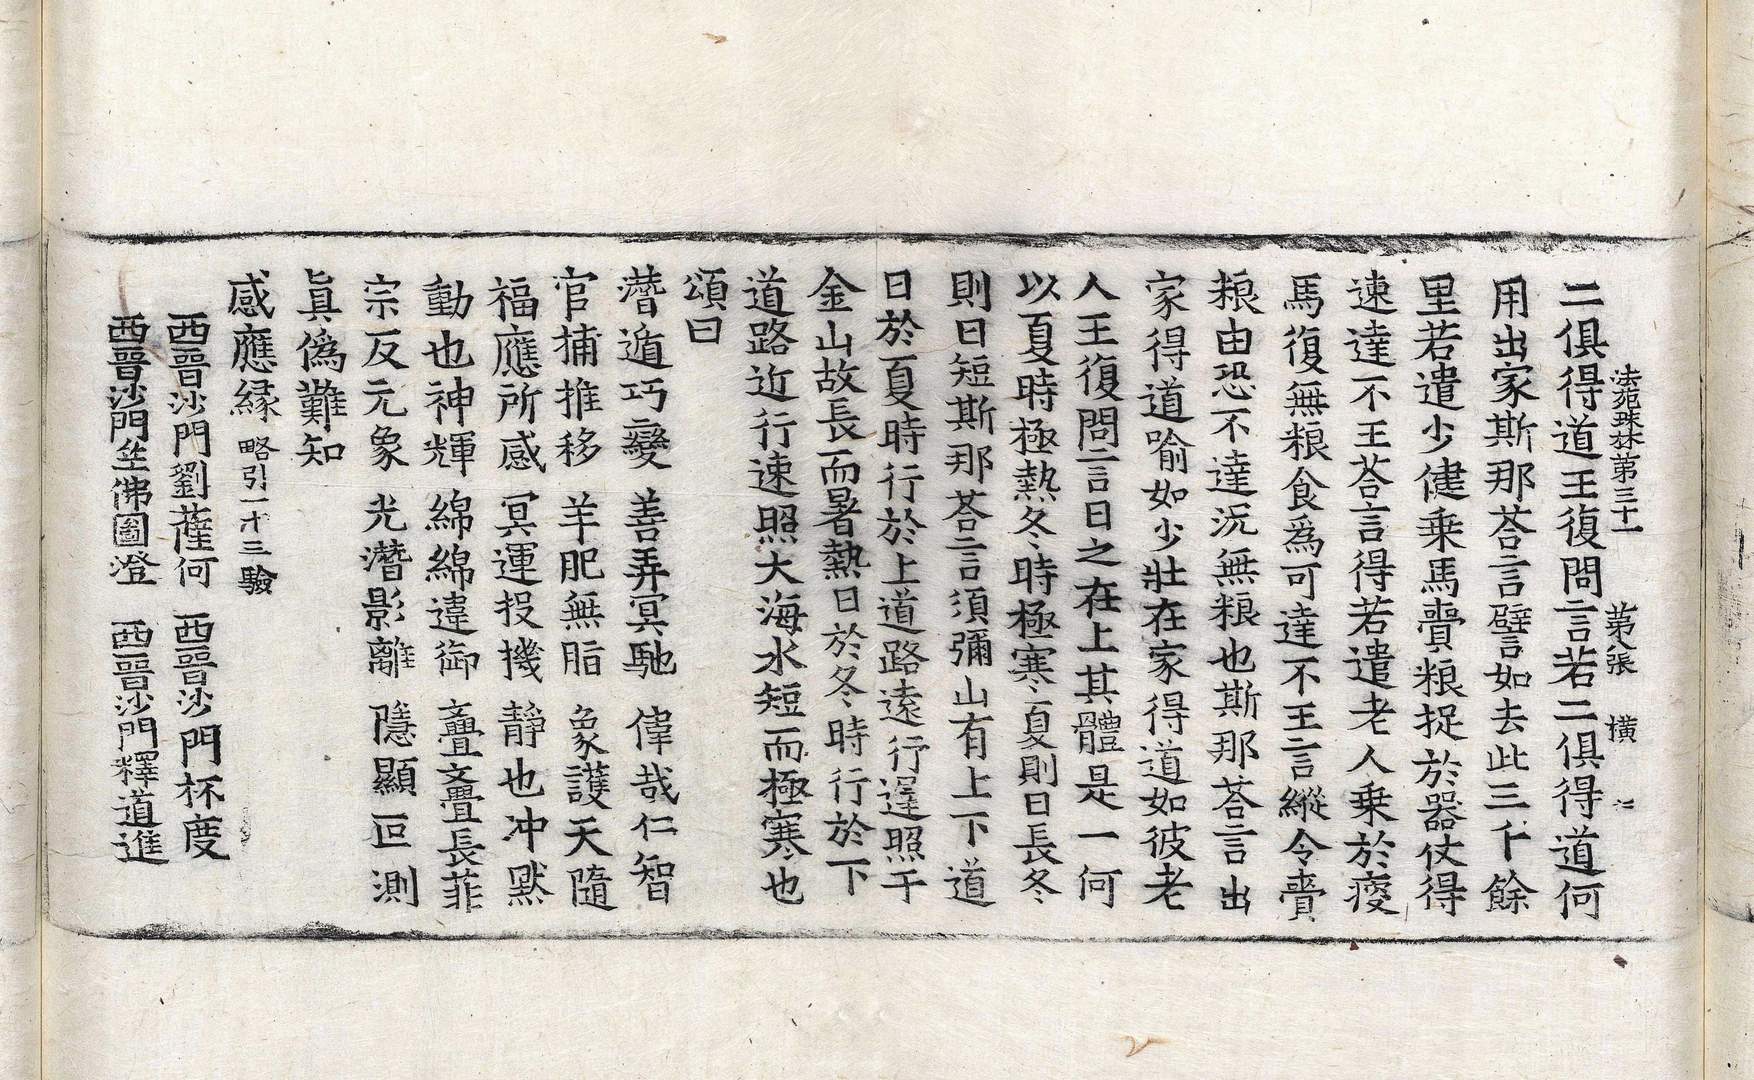 法苑珠林第三十一　第八張　橫
二俱得道王復問言若二俱得道何
用出家斯那荅言譬如去此三千餘
里若遣少健乗馬賷粮捉於器仗得
速達不王荅言得若遣老人乗於瘦
馬復無粮食爲可達不王言縱令賷
粮由恐不達況無粮也斯那荅言出
家得道喻如少壯在家得道如彼老
人王復問言日之在上其體是一何
以夏時極熱冬時極寒夏則日長冬
則日短斯那荅言須彌山有上下道
日於夏時行於上道路遠行遲照于
金山故長而暑熱日於冬時行於下
道路近行速照大海水短而極寒也
頌曰
潛遁巧變　善弄冥馳　偉哉仁智
官捕推移　羊肥無脂　象護天隨
福應所感　冥運投機　靜也冲默
動也神輝　綿綿違御　亹亹長菲
宗反元象　光潛影離　隱顯叵測
眞僞難知
感應緣　略引一十三驗
西晉沙門劉薩何　西晉沙門杯度
西晉沙門竺佛圖澄　西晉沙門釋道進